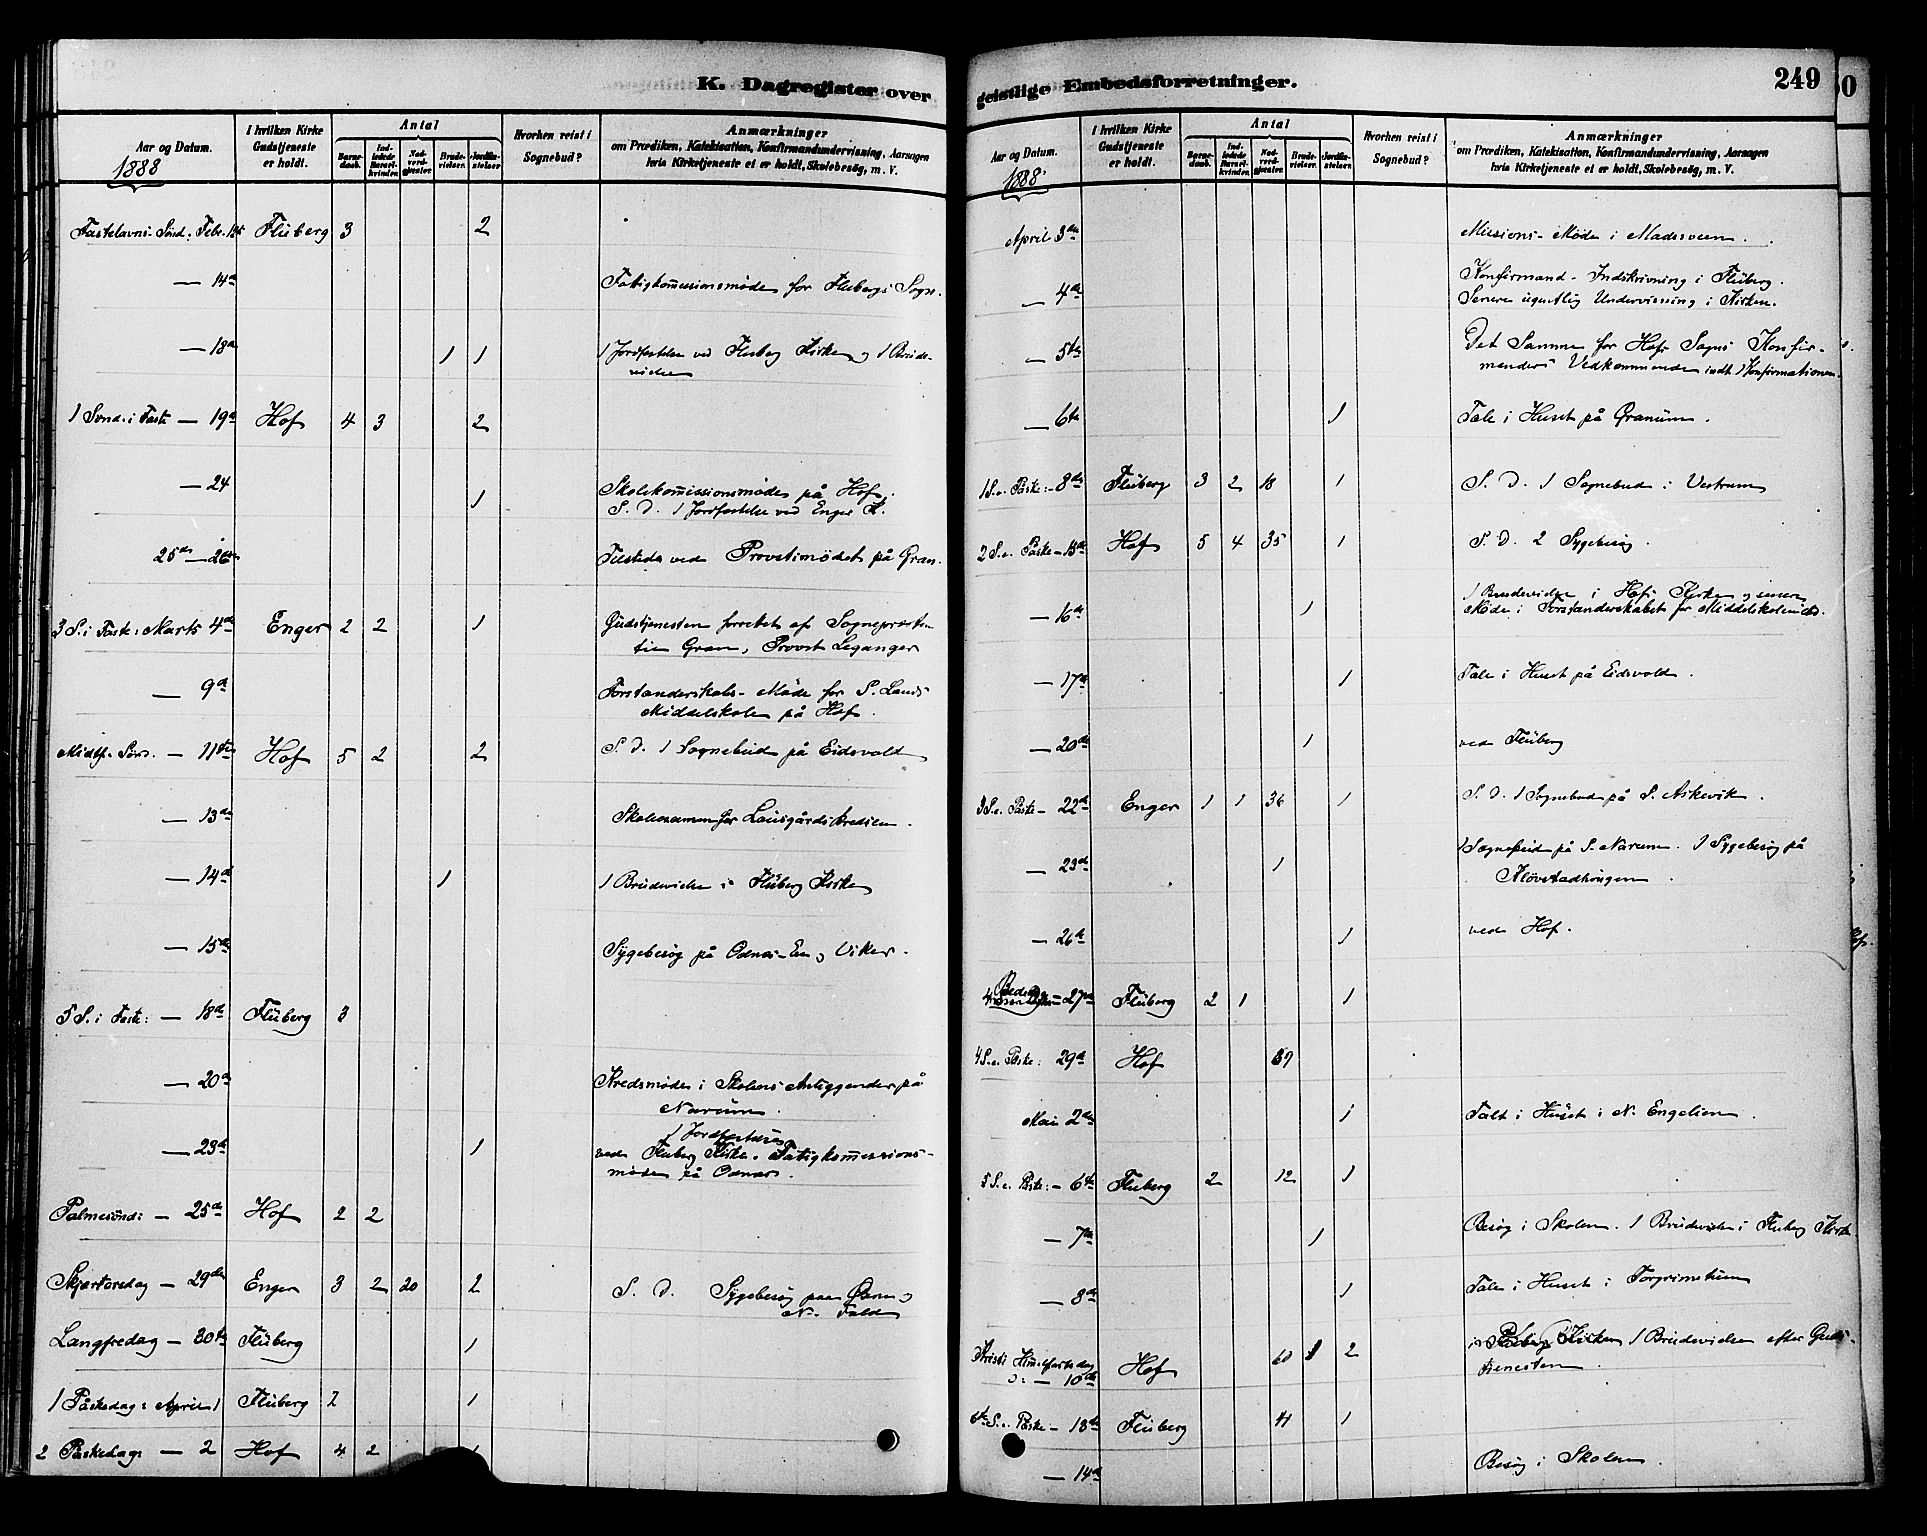 K. Dagregister over
Aar og Datum.
1888
I hvilken Kirke Gudstjeneste er holdt.
Antal
Barnedaab.
Indledede Barselkvinder.
Nadverdgjester.
Brudevielser.
Jordfæstelser.
Hvorhen reist i Sognebud?
Anmærkninger
om Prædiken, Katekisation, Konfirmandundervisning, Aarsagen
hvis Kirketjeneste ei er holdt, Skolebesøg, m. V.
Fastelavns-Sønd: Febr. Fluberg 3 2
— 14d Fatigkommissionsmøde for Flubergs Sogn.
— 18d 1 1 1 Jordfæstelse ved Fluberg Kirke og 1 Brude-
vielse
1 Sønd. i Faste — 19d Hof 4 3 2
— 24 1 Skolekommissionsmøde på Hof.
S. D. 1 Jordfæstelse ved Enger K.
25de — 26 Tilstede ved Provstimødet på Gran.
3 S. i Faste: Marts 4de Enger 2 2 1 Gudstjenesten forrettet af Sognepræsten
til Gran, Provst Leganger
— 9d Forstanderskabs-Møde for S. Lands
Middelskole på Hof.
Midtf. Sønd. — 11te Hof 5 2 2 S. D. 1 Sognebud på Eidsvold
— 13de Skoleexamen for Lausgårds Kredsen.
— 14d 1 1 Brudevielse i Fluberg Kirke
— 15d Sygebesøg på Odnæs-Eie og Viker.
5 S. i Faste: — 18de Fluberg 3
— 20d Kredsmøde i Skolens Anliggender på
Narum.
— 23d 1 1 Jordfæstelse
ved Fluberg Kirke. Fatigkommissions-
møde på Odnæs.
Palmesønd: — 25de Hof 2 2
Skjærtorsdag — 29de Enger 3 2 20 2 S. D. Sygebesøg paa
N. Fald
Langfredag — 30te Fluberg 1
1 Påskedag: April 1 Fluberg 2 1
2 Påskedag: — 2 Hof 4 2 1
geistlige Embedsforretninger.
249
Aar og Datum.
1888
I hvilken Kirke Gudstjeneste er holdt.
Antal
Barnedaab.
Indledede Barselkvinder.
Nadverdgjester.
Brudevielser.
Jordfæstelser.
Hvorhen reist i Sognebud?
Anmærkninger
om Prædiken, Katekisation, Konfirmandundervisning, Aarsagen
hvis Kirketjeneste ei er holdt, Skolebesøg, m. V.
April 3de Missions-Møde i Madsveen.
— 4d Konfirmand-Indskrivning i Fluberg.
Senere ugentlig Undervisning i Kirken.
— 5te Det Samme for Hofs Sogns Konfir-
manders Vedkommende indt. Konfirmationen.
— 6te 1 Tale i Huset på Granum.
1 S. e. Påske: — 8de Fluberg 3 2 18 1 S. D. 1 Sognebud i Vestrum
2 S. e. Påske — 15de Hof 5 4 35 1 S. D. 2 Sygebesøg.
— 16de 1 1 Brudevielse i Hofs Kirke og senere
Møde i Forstanderskabet for Middelskolen.
— 17d 1 Tale i Huset på Eidsvold.
— 20de 1 ved Fluberg
3 S. e. Påske — 22d Enger 1 1 36 1 S. D. 1 Sognebud på S. Askevik.
— 23d 1 1 Sognebud på S. Narum. 1 Sygebesøg på
Kløvstadhaugen.
— 26d 1 ved Hof.
Bededag — 27de Fluberg 2 1 1
4 S. e. Påske: 29d Hof 89
Mai 2den 1 Talt i Huset i N. Engelien.
5 S. e. Påske: — 6te Fluberg 2 12 1
— 7de 1 Besøg i Skolen. 1 Brudevielse i Fluberg Kirke
— 8de 1 Tale i Huset i Torgrimstuen
Kristi Himmelfartsdag
— 10de Hof 60 1 2 i Fluberg Kirke 1 Brudevielse efter Guds-
tjenesten.
6te S. e. Påske — 13de Fluberg 41 1
— 14d Besøg i Skolen.